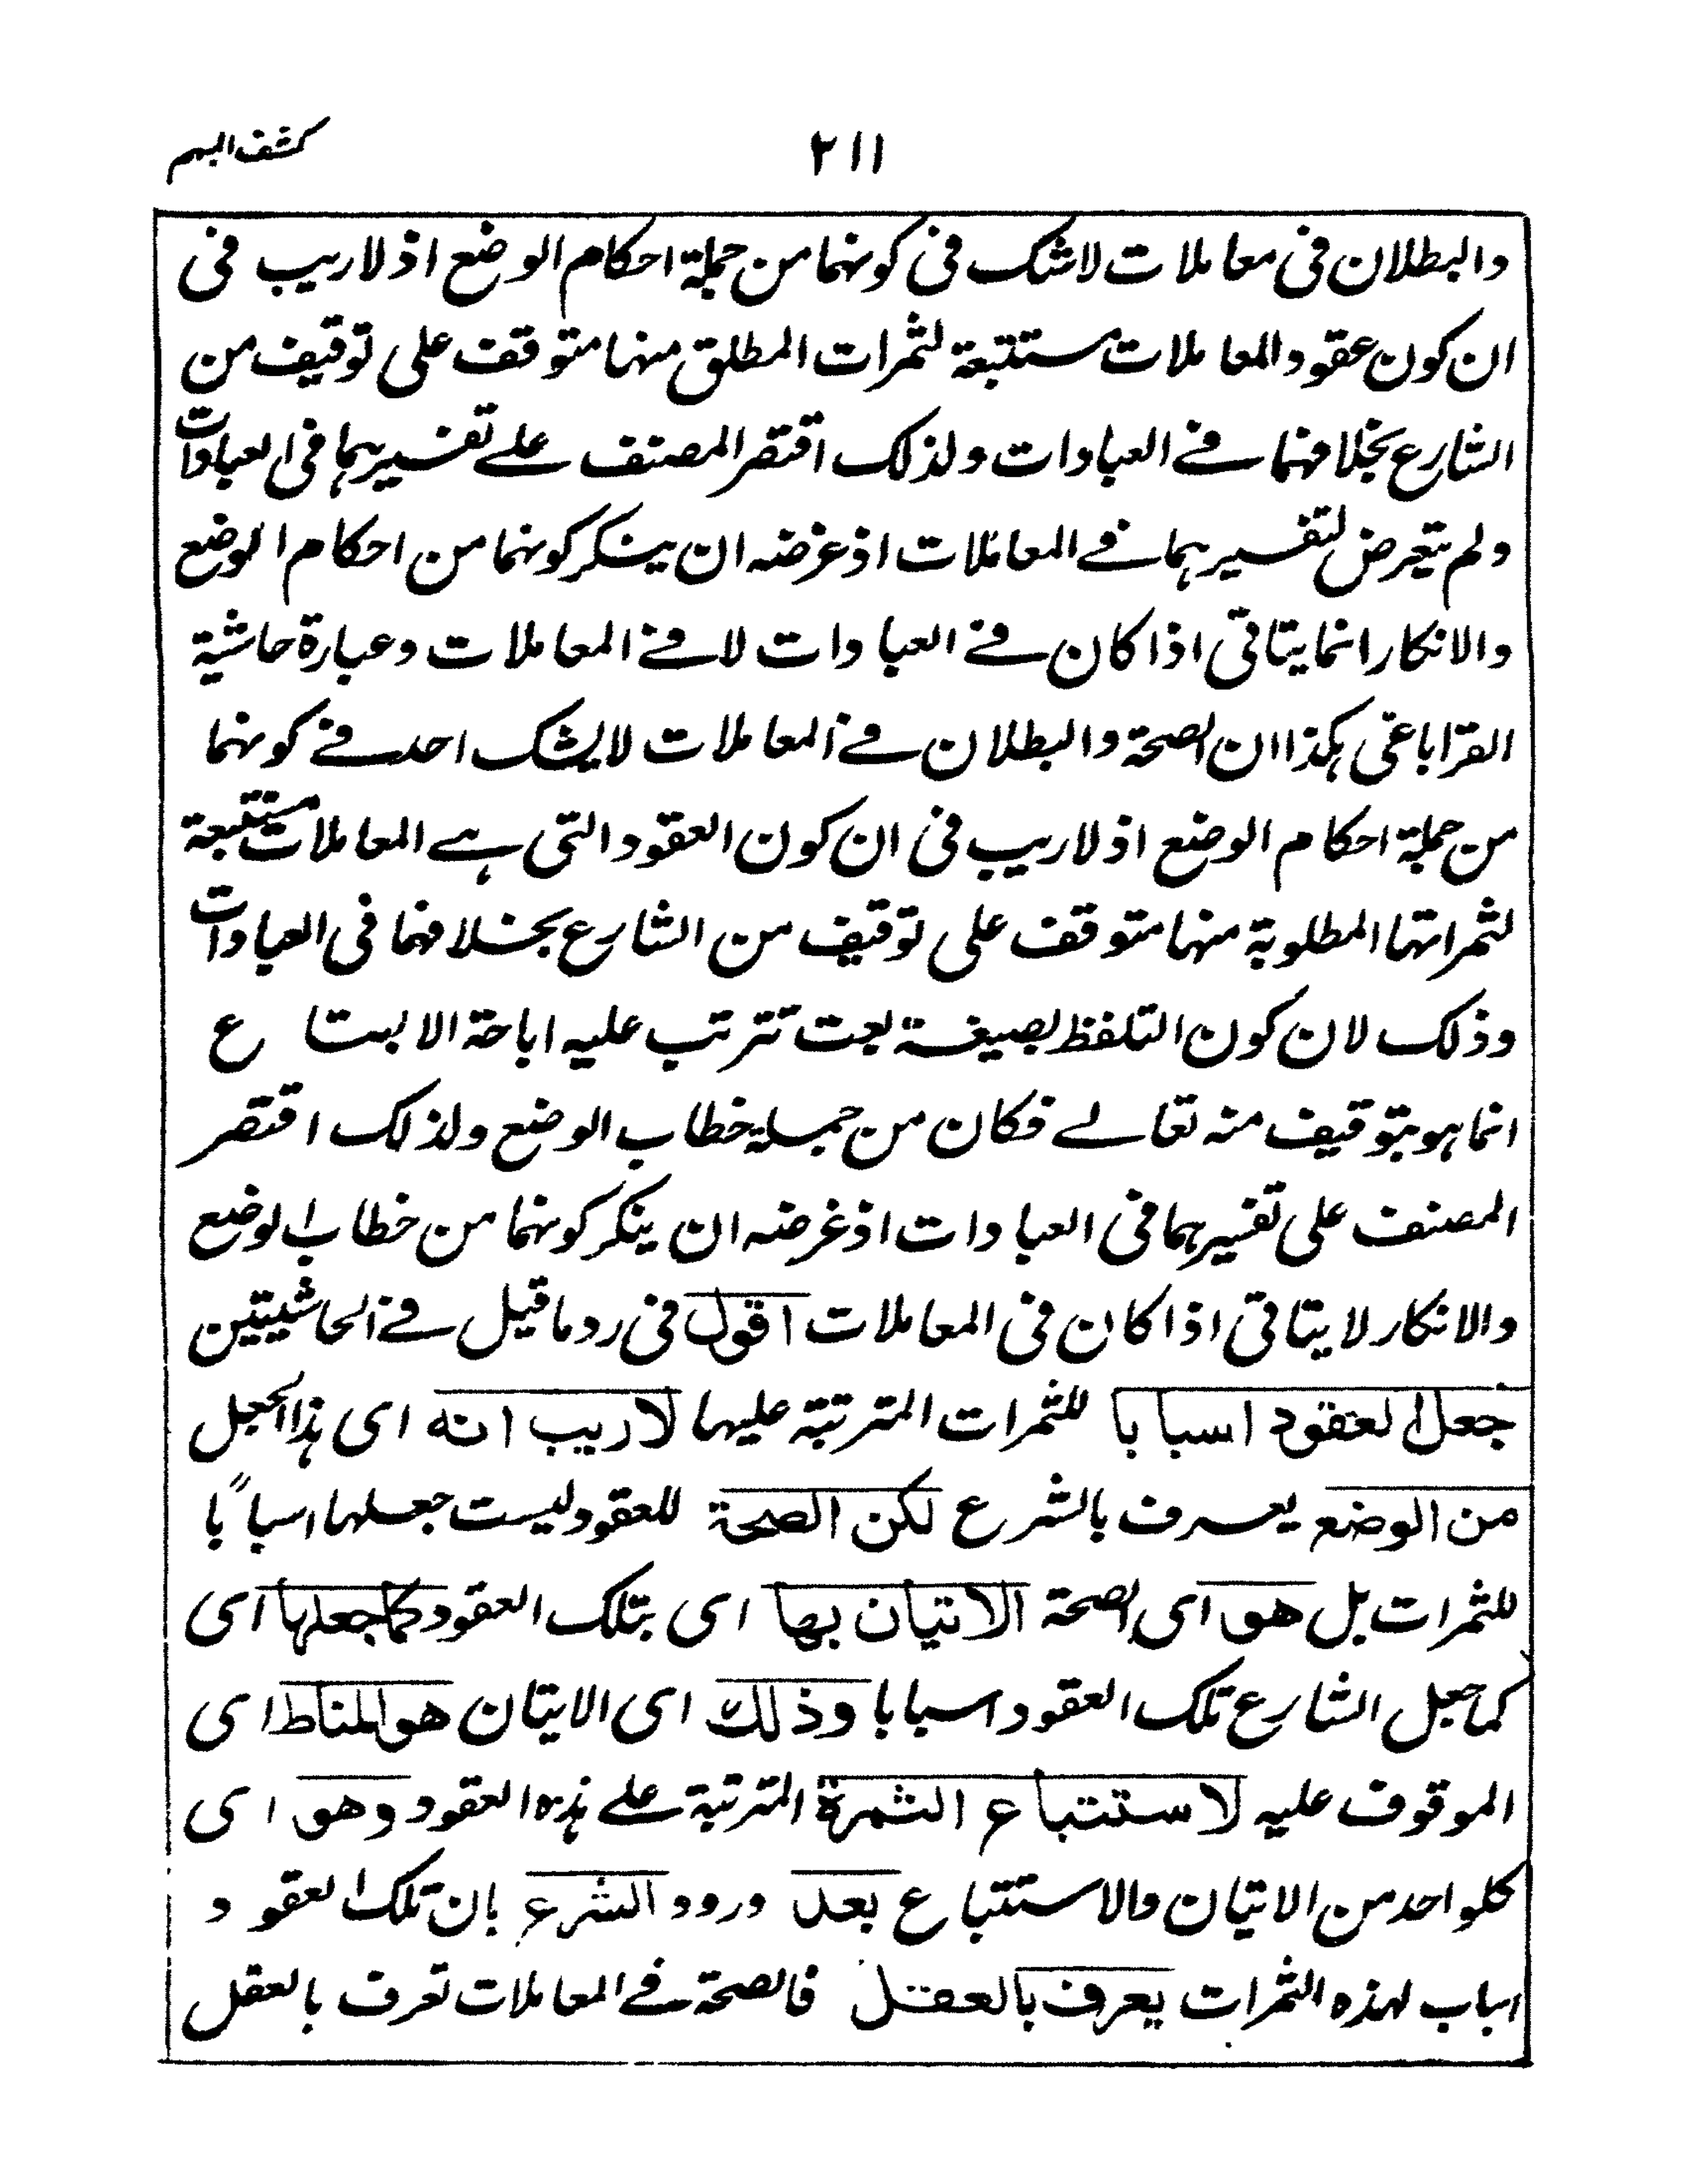 كشف المبهم
٢١١
والبطلان فى معاملات لاشك فى كونهما من جملة احكام الوضع اذ لاريب فى
ان كون عقود المعاملات مستتبعة لثمرات المطلق منها متوقف على توقيف من
الشارع بخلافهما فے العبادات ولذلك اقتصر المصنف علے تفسيرهما فى العبادات
ولم يتعرض لتفسيرهما فے المعاملات اذ غرضه ان ينكر كونهما من احكام الوضع
والانكار انما يتاتى اذا كان فے العبادات لا فے المعاملات وعبارة حاشية
القراباغى هكذا ان الصحة والبطلان فے المعاملات لايشك احد فے كونهما
من جملة احكام الوضع اذ لاريب فى ان كون العقود التى هے المعاملات مستتبعة
لثمراتها المطلوبة منها متوقف على توقيف من الشارع بخلافهما فى العبادات
وذلك لان كون التلفظ بصيغة بعت تترتب عليه اباحة الابتاع
انما هو بتوقيف منه تعالے فكان من جملة خطاب الوضع ولذلك اقتصر
المصنف على تفسيرهما فى العبادات اذ غرضه ان ينكر كونهما من خطاب الوضع
والانكار لا يتاتى اذا كان فى المعاملات اقول فى رد ما قيل فے الحاشيتين
جعل العقود اسبابا للثمرات المترتبة عليها لاريب انه اى هذا الجعل
من الوضع يعرف بالشرع لكن الصحة للعقود ليست جعلها اسباباً
للثمرات بل هو اى الصحة الاتيان بها اى بتلك العقود كما جعلها اى
كما جعل الشارع تلك العقود اسبابا وذلك اى الاتيان هو المناط اى
الموقوف عليه لاستتباع الثمرة المترتبة علے هذه العقود وهو اى
كلواحد من الاتيان والاستتباع بعد ورود الشرع بان تلك العقود
اسباب لهذه الثمرات يعرف بالعقل فالصحة فے المعاملات تعرف بالعقل